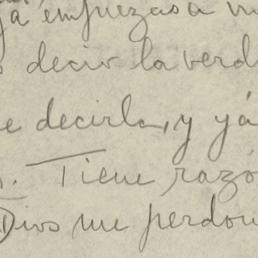 ya empuezasa
decir la verd
e decirla, y yá
. Tiene razó
Dios me perdon